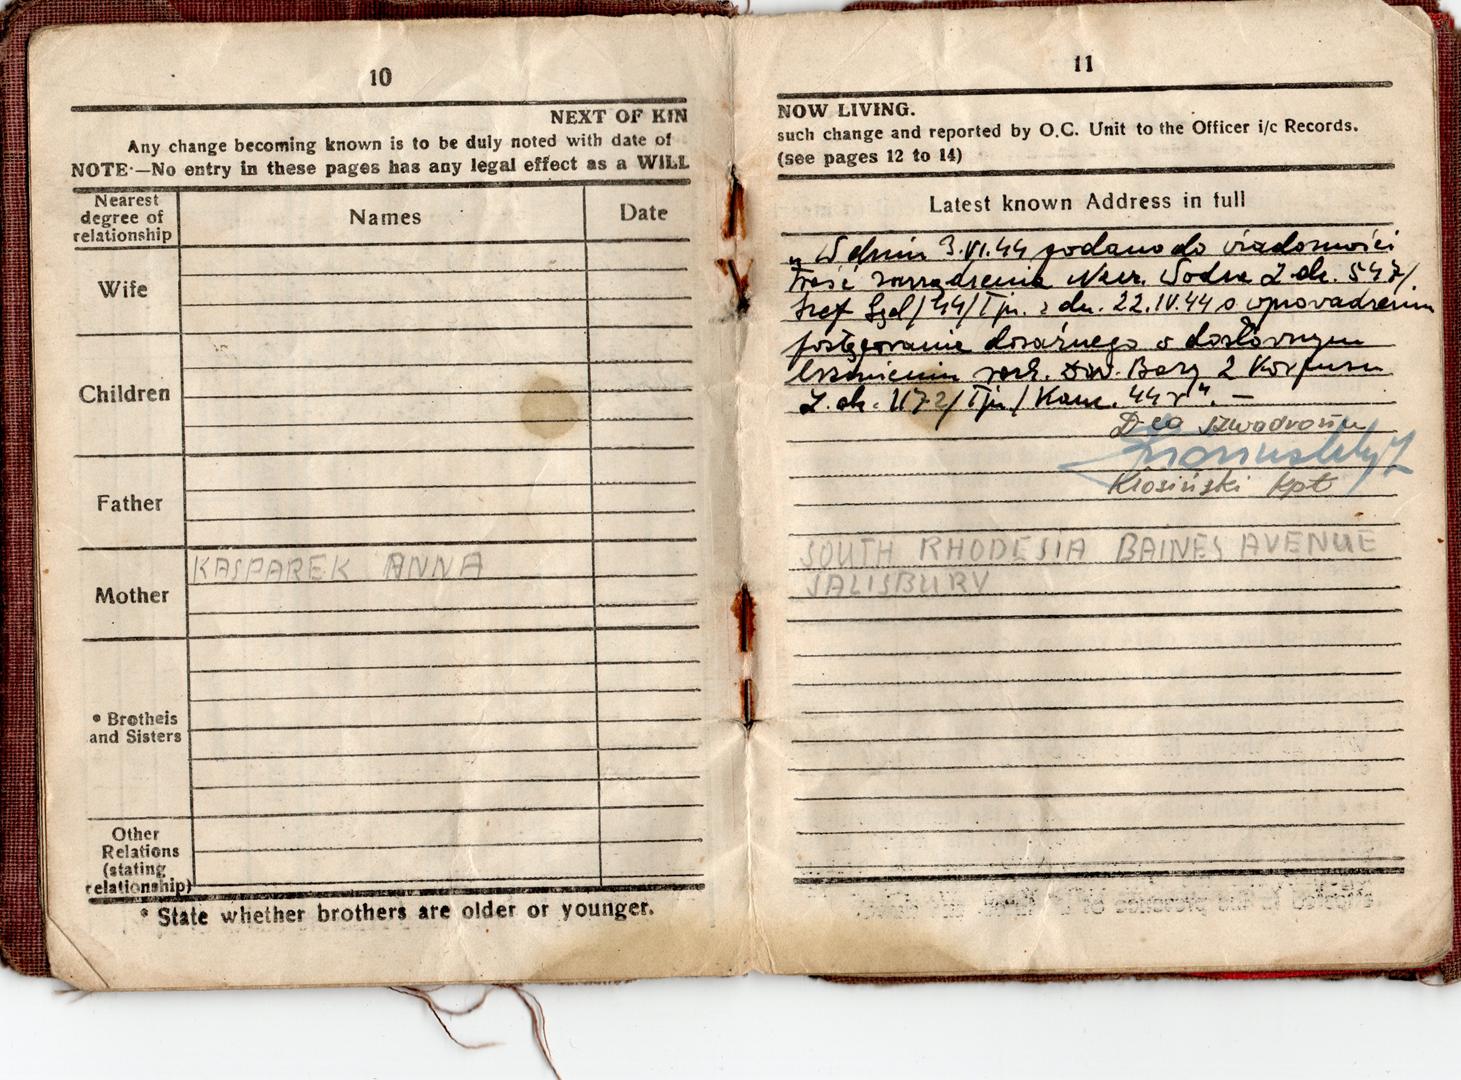 10
NEXT OF KIN
Any change becoming known is to be duly noted with date of
NOTE·—No entry in these pages has any legal effect as a WILL
Nearest
degree of
relationship
Names
Date
Wife
Children
Father
Mother
KASPAREK ANNA
* Brothers
and Sisters
Other
Relations
(stating
relationship)
* State whether brothers are older or younger.
11
NOW LIVING.
such change and reported by O.C. Unit to the Officer i/c Records.
(see pages 12 to 14)
Latest known Address in full
„W dniu 3.VI.44 podano do wiadomości
treść zarządzenia Nacz. Wodza L.dz. 547/
Szef Sąd/44/Tjn. z dn. 22.IV.44 o wprowadzeniu
postępowania doraźnego o dosłownym
brzmieniu rozk. Dow. Bazy 2 Korpusu
L.dz. 1172/Tjn/Kanc. 44 r". —
D-ca szwadronu
Kłosiński kpt
SOUTH RHODESIA BAINES AVENUE
SALISBURY